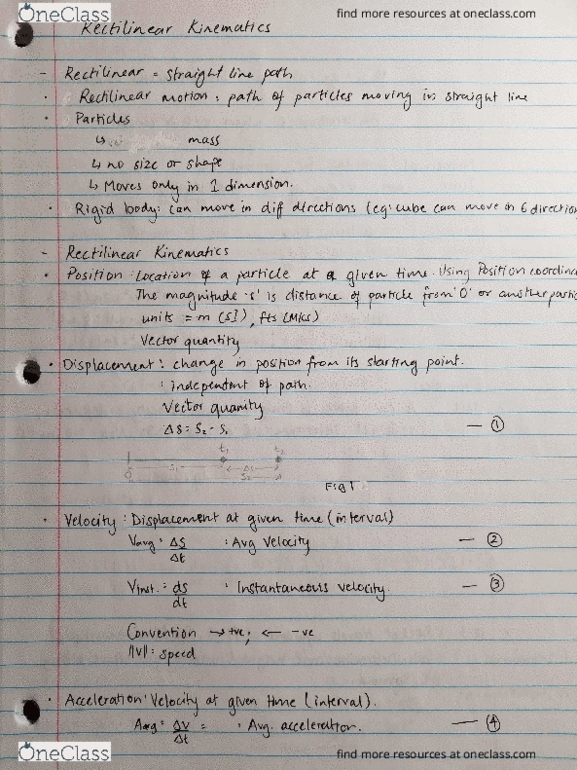 OneClass
find more resources at oneclass.com
Rectilinear Kinematics
- Rectilinear = straight line path
· Rectilinear motion : path of particles moving in straight line
· Particles
↳ mass
↳ no size or shape
↳ Moves only in 1 dimension.
· Rigid body: can move in diff directions (eg: cube can move in 6 direction
- Rectilinear Kinematics
· Position : Location of a particle at a given time. Using Position coordina
The magnitude 's' is distance of particle from 'O' or another partic
units = m (SI), fts (MKS)
Vector quantity
· Displacement : change in position from its starting point.
: independent of path.
Vector quanity
Δs = S₂ - S₁ — ①
t₁ t₂
O S₁ Δs
S₂
Fig 1
· Velocity : Displacement at given time (interval)
Vavg = Δs/Δt : Avg Velocity — ②
Vinst. = ds/dt : Instantaneous velocity. — ③
Convention → +ve, ← -ve
||v|| : speed
· Acceleration : Velocity at given time (interval).
Aavg = Δv/Δt = : Avg. acceleration. — ④
OneClass
find more resources at oneclass.com